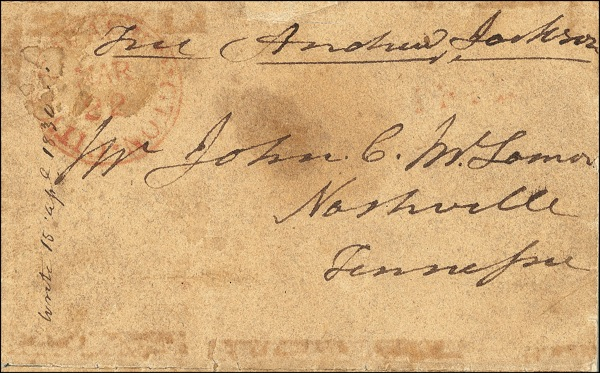 Free Andrew Jackson
MAR
Mr John C. McLemor
Nashville
Tennessee
write 15 apl 1830